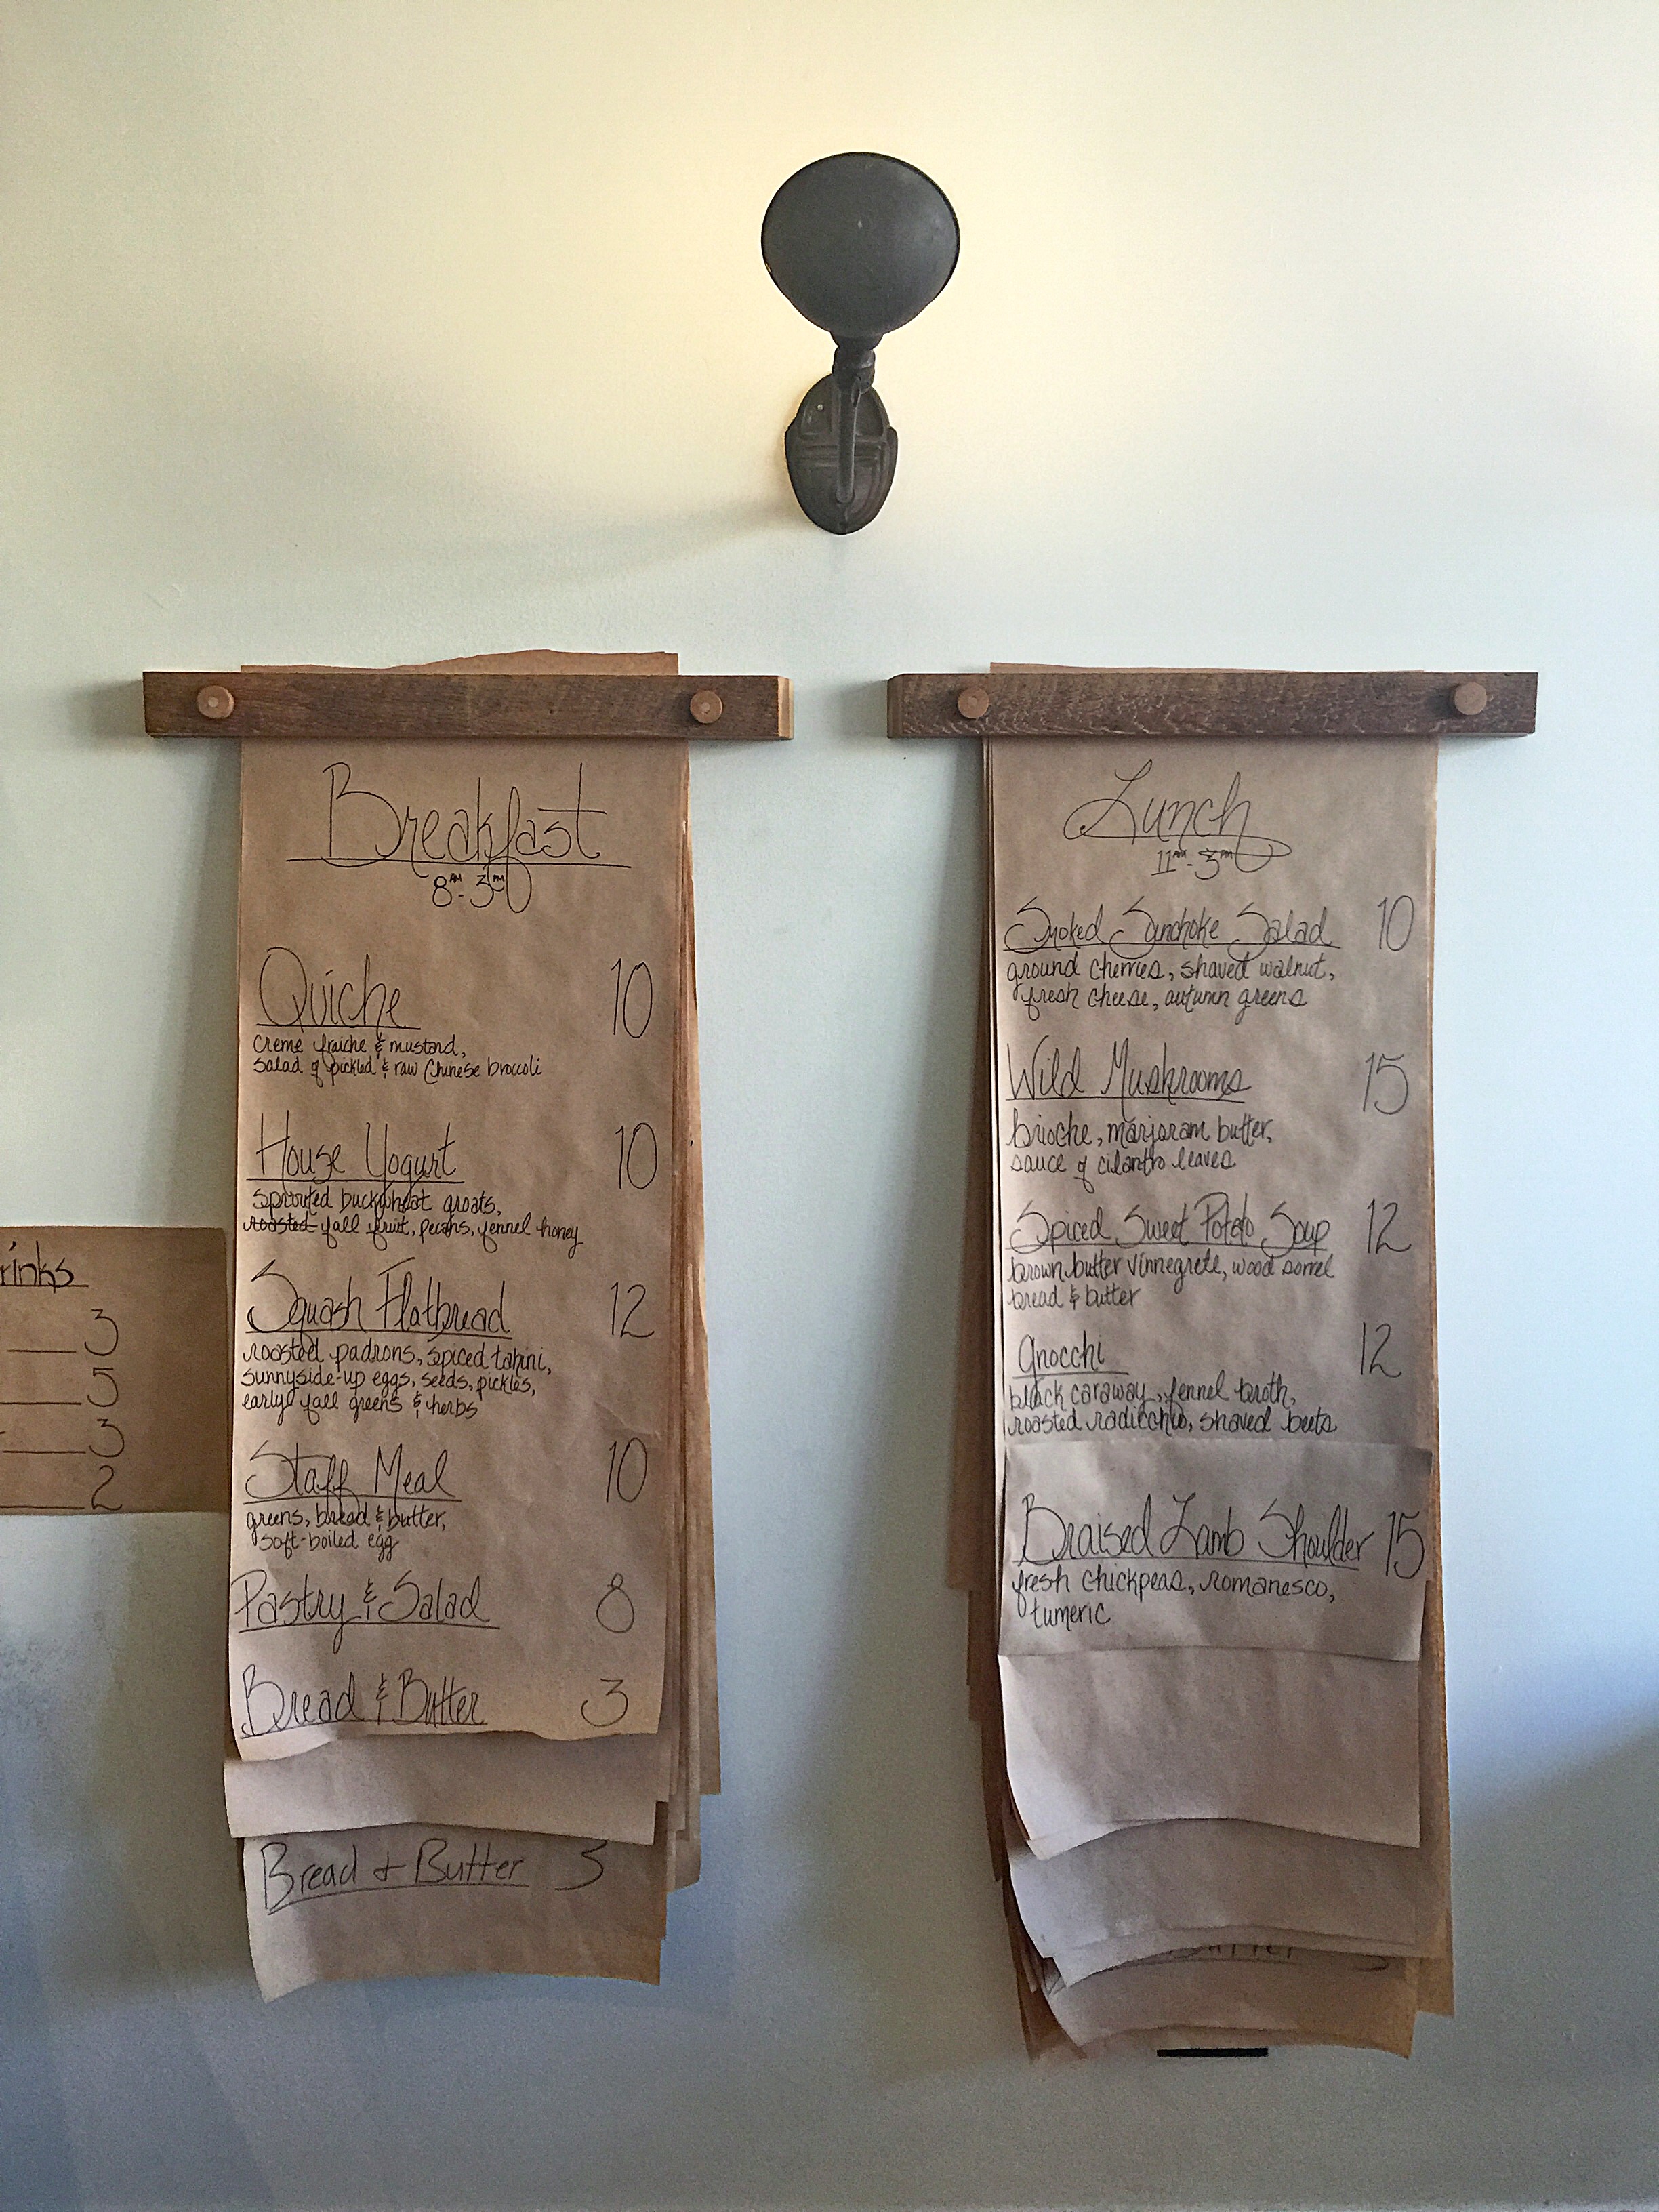 rinks
3
5
3
2
Breakfast
8AM-3PM
Quiche 10
creme fraiche & mustard,
salad of pickled & raw Chinese broccoli
House Yogurt 10
sprouted buckwheat groats,
roasted fall fruit, pecans, fennel honey
Squash Flatbread 12
roasted padrons, spiced tahini,
sunnyside-up eggs, seeds, pickles,
early fall greens & herbs
Staff Meal 10
greens, bread & butter,
soft-boiled egg
Pastry & Salad 8
Bread & Butter 3
Bread & Butter 3
Lunch
11AM-3PM
Smoked Sunchoke Salad 10
ground cherries, shaved walnut,
fresh cheese, autumn greens
Wild Mushrooms 15
brioche, marjoram butter,
sauce of cilantro leaves
Spiced Sweet Potato Soup 12
brown butter vinnegrete, wood sorrel
bread & butter
gnocchi 12
black caraway, fennel broth,
roasted radicchio, shaved beets
Braised Lamb Shoulder 15
fresh chickpeas, romanesco,
tumeric